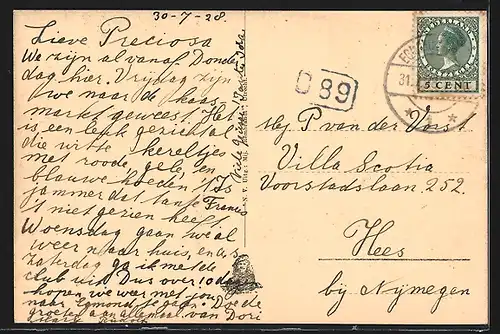 30-7-28.
Lieve Preciosa
We zijn al vanaf Donder
dag hier. Vrijdag zijn
we naar de kaas
markt geweest. Het
is een leuk gezicht al
die witte kereltjes
met roode, gele, en
blauwe hoeden. 't Is
jammer dat tante Francis
't niet gezien heeft.
Woensdag gaan we al
weer naar huis, en
Zaterdag ga ik met de
club uit. Dus over 10 dagen
hopen we weer met
naar Egmond te gaan. Doe de
groeten aan allemaal van Dori
Vele groeten
089
5 CENT
31.
Mej. P. van der Vorst
Villa Scotia
Voorstadslaan 252.
Hees
bij Nijmegen